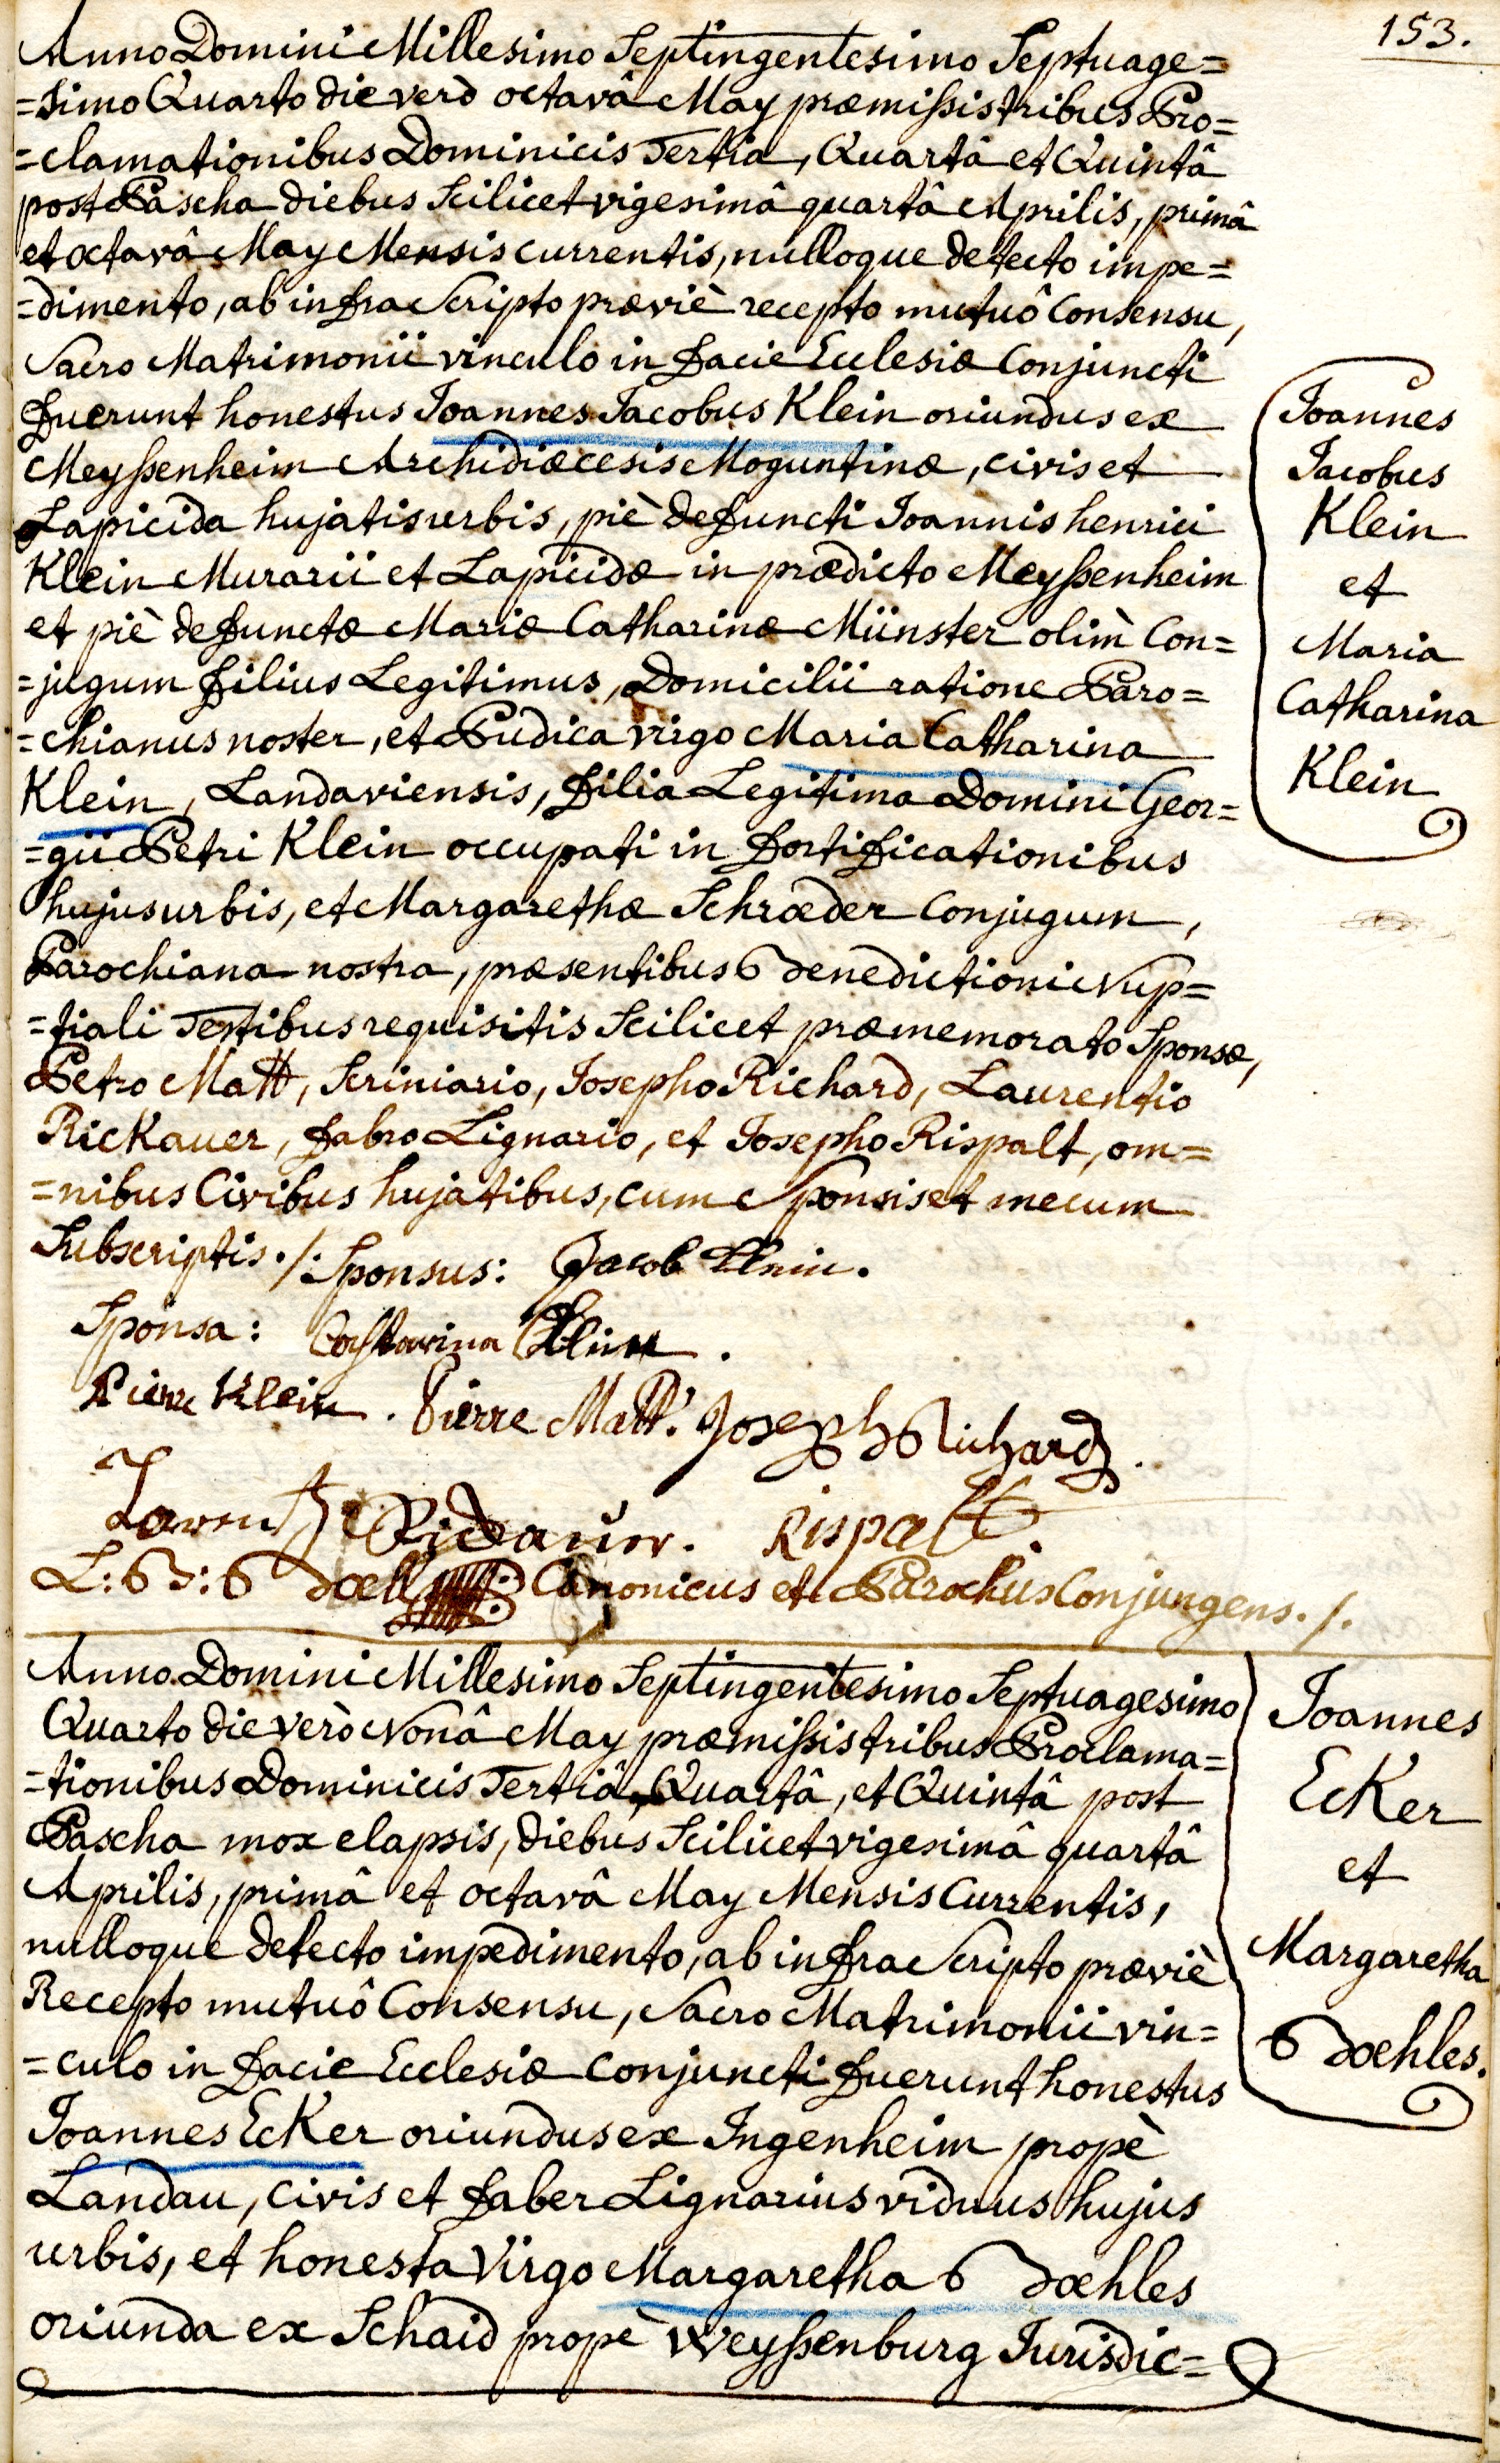 153.
Anno Domini Millesimo Septingentesimo Septuage=
=simo Quarto die verò octavâ May præmissis tribus Pro=
=clamationibus Dominicis Tertia, Quartâ et Quintâ
post Pascha diebus Scilicet vigesimâ quartâ Aprilis, primâ
et octavâ May Mensis currentis, nulloque detecto impe=
=dimento, ab infra Scripto præviè recepto mutuô Consensu,
Sacro Matrimonii vinculo in facie Ecclesiæ Conjuncti
fuerunt honestus Joannes Jacobus Klein oriundus ex
Meyssenheim Archidiæcesis Moguntinæ, civis et
Lapicida hujatis urbis, piè defuncti Joannis henrici
Klein Murarii et Lapicidæ in prædicto Meyssenheim
et piè defunctæ Mariæ Catharinæ Münster olim Con=
=jugum filius Legitimus, Domicilii ratione Paro=
=chianus noster, et Pudica virgo Maria Catharina
Klein, Landaviensis, filia Legitima Domini Geor=
=gii Petri Klein occupati in fortificationibus
hujus urbis, et Margarethæ Schræder Conjugum,
Parochiana nostra, præsentibus Benedictioni Nup=
=tiali Testibus requisitis Scilicet præmemorato Sponsæ,
Petro Matt, Scriniario, Josepho Richard, Laurentio
Rickauer, fabro Lignario, et Josepho Rispalt, om=
=nibus Civibus hujatibus, cum Sponsis et mecum
Subscriptis./. Sponsus: Jacob Klein.
Sponsa: Catharina Klein.
Pierre Klein. Pierre Matt. Joseph Richard.
Lorentz Rickauer. Rispalt.
L: B: Bœll Canonicus et Parochus Conjungens./.
Joannes
Jacobus
Klein
et
Maria
Catharina
Klein
Anno Domini Millesimo Septingentesimo Septuagesimo
Quarto die verò Nonâ May præmissis tribus Proclama=
=tionibus Dominicis Tertiâ, Quartâ, et Quintâ post
Pascha mox elapsis, diebus Scilicet vigesimâ quartâ
Aprilis, primâ et octavâ May Mensis Currentis,
nulloque detecto impedimento, ab infra Scripto præviè
Recepto mutuô Consensu, Sacro Matrimonii vin=
=culo in facie Ecclesiæ conjuncti fuerunt honestus
Joannes EcKer oriundus ex Ingenheim propè
Landau, civis et faber Lignarius viduus hujus
urbis, et honesta Virgo Margaretha Bœhles
oriunda ex Schaid propè Weyssenburg Jurisdic=
Joannes
EcKer
et
Margaretha
Bœhles.